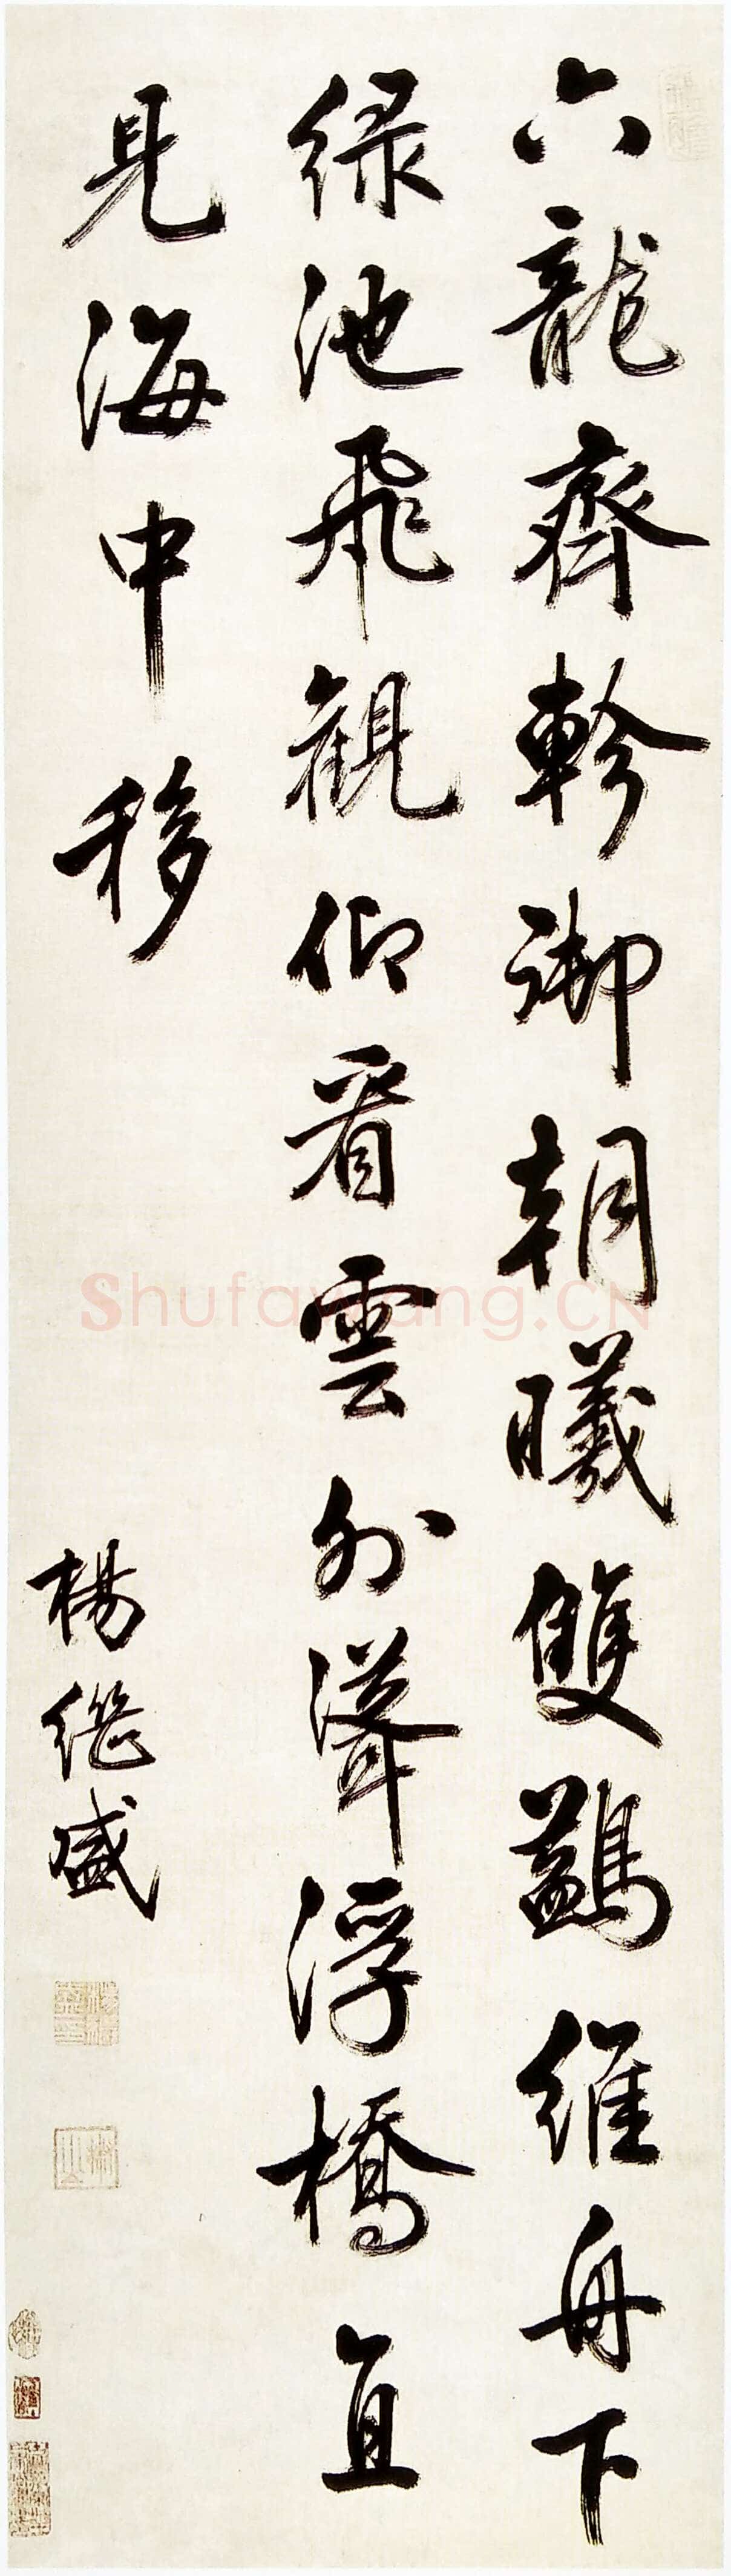 六龍齊軫御朝曦雙鷁維舟下
緑池飛觀仰看雲外聳浮橋直
見海中移
楊继盛
Shufawang.CN